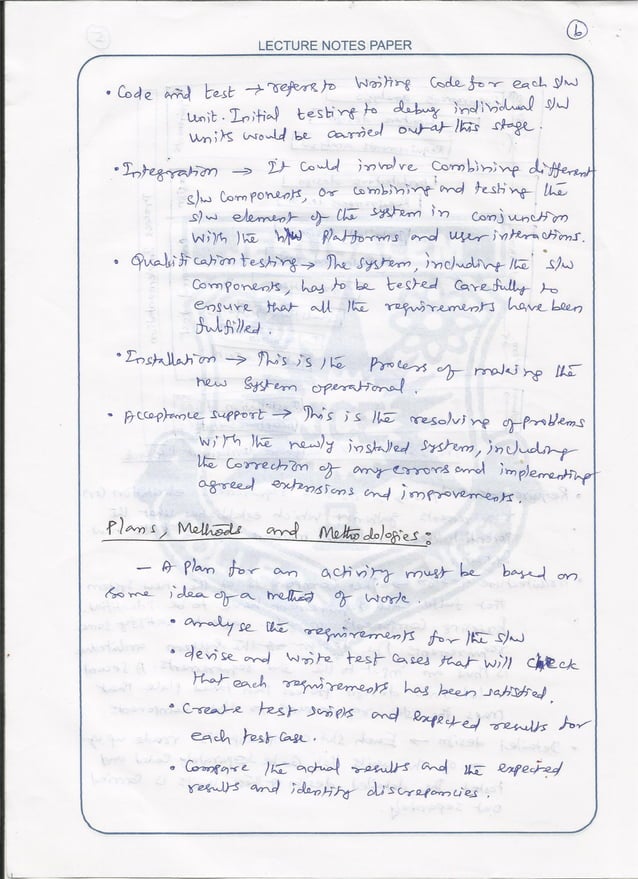 6
LECTURE NOTES PAPER
• Code and test → refers to Writing Code for each s/w
unit. Initial testing to debug individual s/w
units would be carried out at this stage.
• Integration → It could involve Combining different
s/w Components, or combining and testing the
s/w element of the system in conjunction
with the h/w Platforms and user interactions.
• Qualification testing → The system, including the s/w
Components, has to be tested Carefully to
ensure that all the requirements have been
fulfilled.
• Installation → This is the Process of making the
new System operational.
• Acceptance support → This is the resolving of problems
with the newly installed system, including
the Correction of any errors and implementing
agreed extensions and improvements.
Plans, Methods and Methodologies:
– A Plan for an activity must be based on
some idea of a method of work.
• analyse the requirements for the s/w
• devise and write test cases that will check
that each requirements has been satisfied.
• Create test scripts and expected results for
each test case.
• Compare the actual results and the expected
results and identity discrepancies.